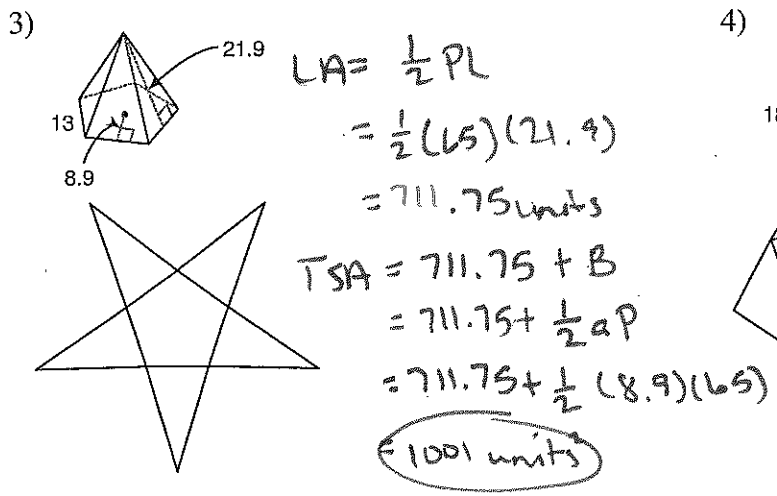 3)
4)
21.9
13
8.9
18
LA = 1/2 Pl
= 1/2 (65)(21.9)
= 711.75 units
TSA = 711.75 + B
= 711.75 + 1/2 aP
= 711.75 + 1/2 (8.9)(65)
= 1001 units²